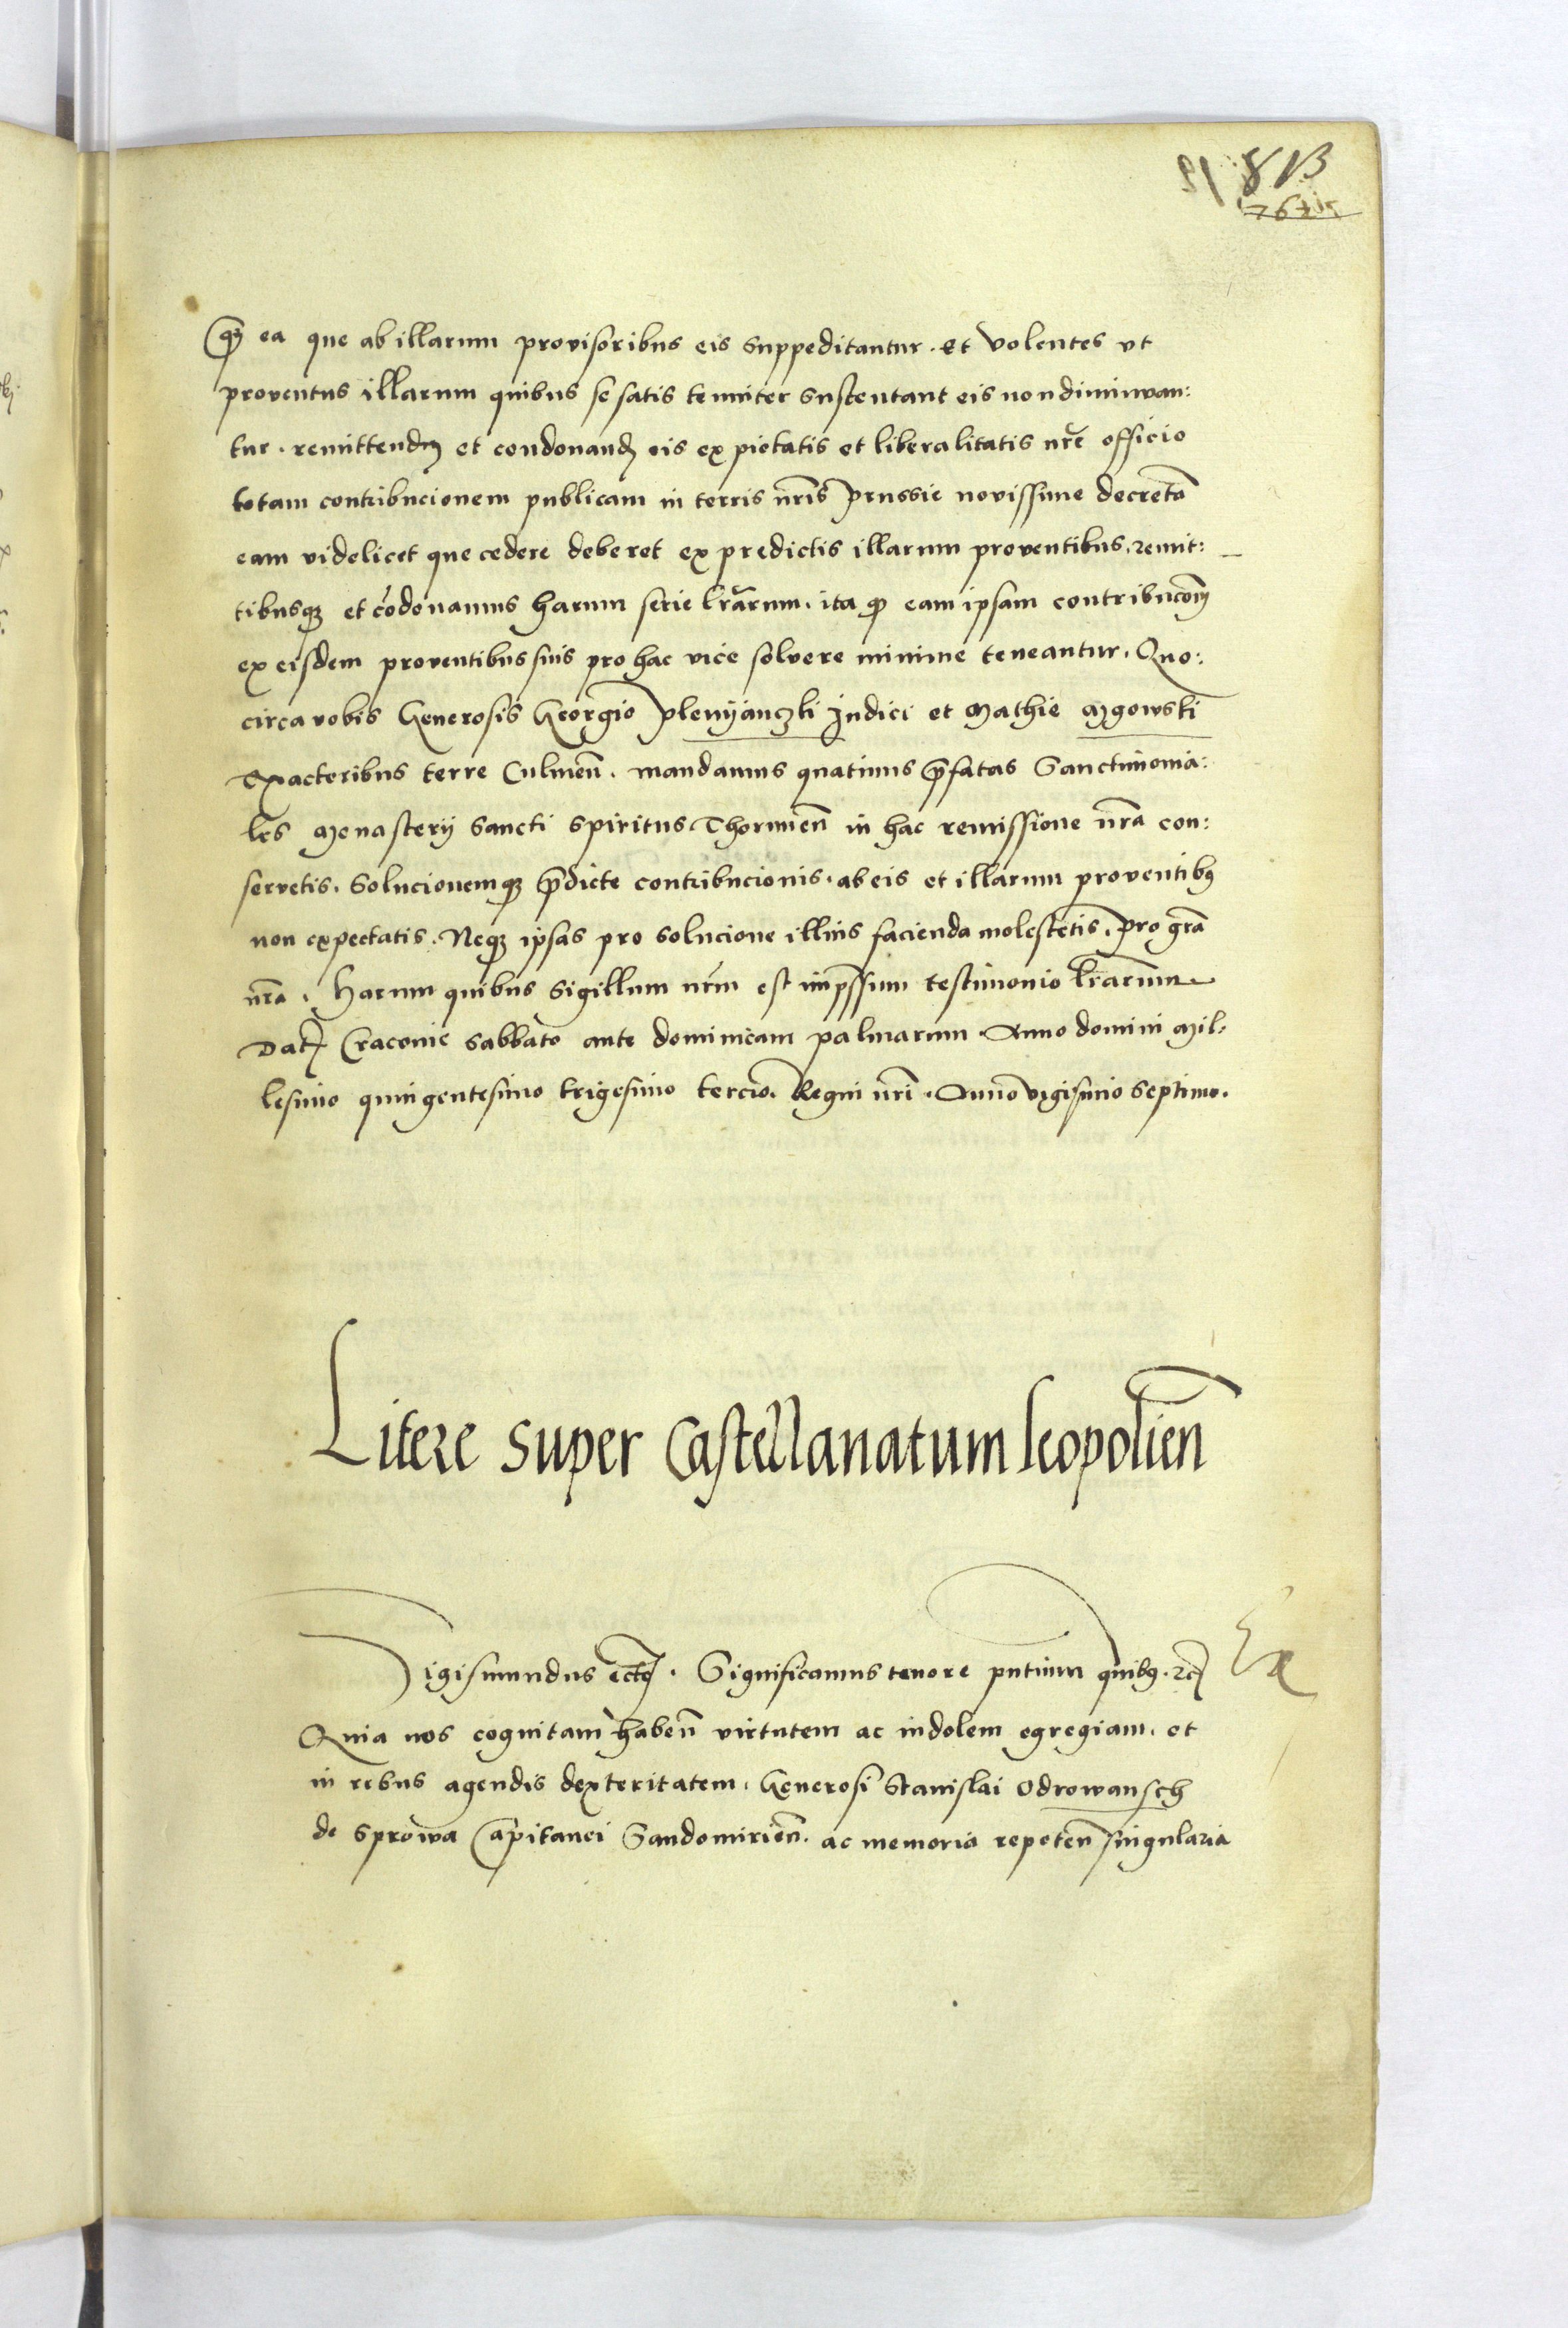 qꝫ ea que ab illarum provisoribus eis suppeditantur. Et volentes vt
proventus illarum quibus se satis tenuiter sustentant eis non diminwan:
tur. remittendꝫ et condonandꝫ eis ex pietatis et liberalitatis nr̄e officio
totam contribucionem publicam in terris nr̄is Prussie novissime decretā
eam videlicet que cedere deberet ex predictis illarum proventibus. remit:
tibusqꝫ et cōdonamus harum serie lr̄arum. ita qꝫ eam ipsam contribucōem
ex eisdem proventibus suis pro hac vice solvere minime teneantur. Quo:
circa vobis Generosis Georgio Plenÿanczki Judici et Mathie Mgowski
Exactoribus terre Culmeñ. mandamus quatinus p̄fatas Sanctimonia:
les Monasterij Sancti Spiritus Thoruneñ in hac remissione nr̄a con:
servetis. Solucionemqꝫ p̄dicte contribucionis. ab eis et illarum proventibꝰ
non expectatis. Neqꝫ ipsas pro solucione illius facienda molestetis. Pro gr̄a
nr̄a. Harum quibus Sigillum nr̄m est imp̄ssum testimonio lr̄arum
Datꝫ Cracovie Sabbato ante dominicam palmarum. Anno domini Mil:
lesimo quingentesimo trigesimo tercio. Regni nr̄i. Anno vigesimo septimo.
Litere super Castellanatum leopolien̄
Sigismundus ectꝫ. Significamus tenore pn̄tium quibꝰ. ꝛcꝫ
Quia nos cognitam habeñ virtutem ac indolem egregiam. et
in rebus agendis dexteritatem. Generosi Stanislai Odrowansch
de Sprowa Capitanei Sandomirieñ. ac memoria repeteñ singularia